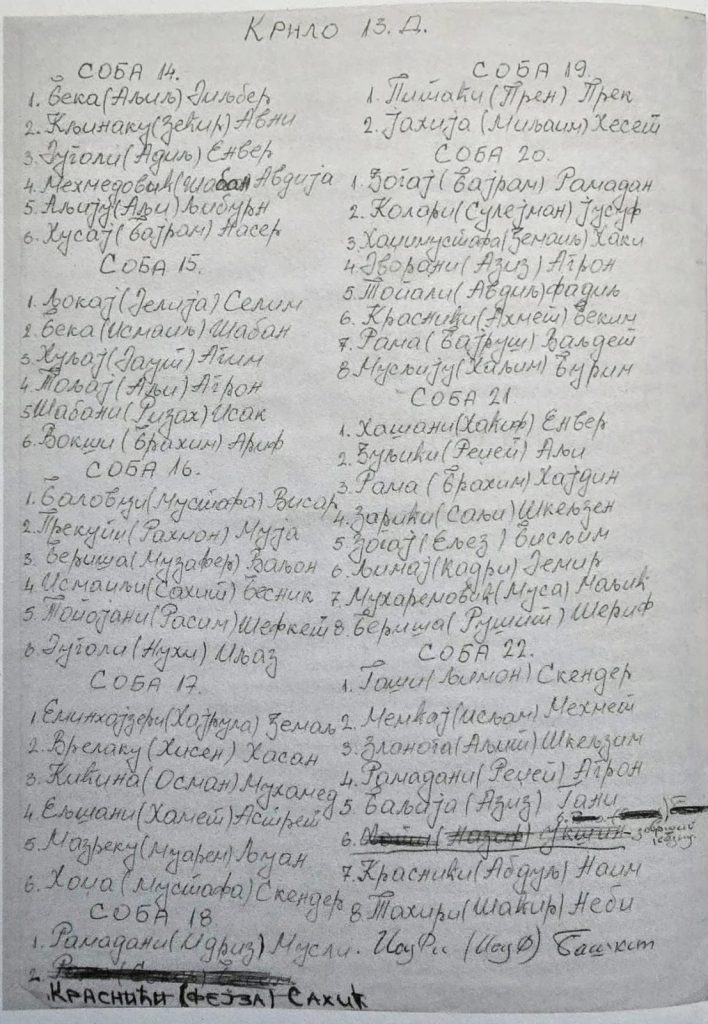 Крило 13. Д.
СОБА 14.
1. Бека (Аљиљ) Гиљбер
2. Кљинаку (Зећир) Авни
3. Гуголи (Адиљ) Енвер
4. Мехмедовић (Шабан) Авдија
5. Аљију (Аљи) Љибурн
6. Хусај (Бајрам) Насер
СОБА 15.
1. Ђокај (Делија) Селим
2. Бека (Исмаиљ) Шабан
3. Хуљај (Даут) Агим
4. Тољај (Аљи) Агрон
5 Шабани (Ризах) Исак
6. Вокши (Брахим) Ариф
СОБА 16.
1. Баловци (Мустафа) Висар
2. Прекупи (Рахмон) Муја
3. Бериша (Музафер) Ваљон
4. Исмаиљи (Сахит) Бесник
5. Топојани (Расим) Шефкет
6. Гуголи (Нухи) Иљаз
СОБА 17.
1. Еминхајзери (Хајрула) Земаљ
2. Врелаку (Хисен) Хасан
3. Кићина (Осман) Мухамед
4. Ељшани (Хамет) Астрет
5. Мазреку (Муарем) Љуан
6. Хоџа (Мустафа) Скендер
СОБА 18
1. Рамадани (Идриз) Мусли. (Исуф) Башкит
2.
Краснићи (Фејза) Сахит
СОБА 19.
1. Питаћи (Прен) Прек
2. Јахија (Миљаим) Хесет
СОБА 20.
1. Зогај (Бајрам) Рамадан
2. Колари (Сулејман) Јусуф
3. Хаџимустафа (Земаиљ) Хаки
4. Дворани (Азиз) Агрон
5. Топали (Авдиљ) Фадиљ
6. Краснићи (Ахмет) Беким
7. Рама (Бајруш) Ваљдет
8. Мусљију (Хаљим) Бурим
СОБА 21
1. Хашани (Хаћиф) Енвер
2. Зуљићи (Реџеп) Аљи
3. Рама (Брахим) Хајдин
4. Зарићи (Саљи) Шкељзен
5 Зогај (Ељез) Бисљим
6. Љимај (Кадри) Демир
7. Мухаремовић (Муса) Маљић
8. Бериша (Рушит) Шериф
СОБА 22.
1. Гаши (Љимон) Скендер
2. Мемћај (Исљам) Мехмет
3. Зланога (Аљит) Шкељзим
4. Рамадани (Реџеп) Агрон
5. Баљаја (Азиз) Гани
6. (Назиф) Укшин
7. Краснићи (Абдуљ) Наим
8. Тахири (Шаћир) Неби